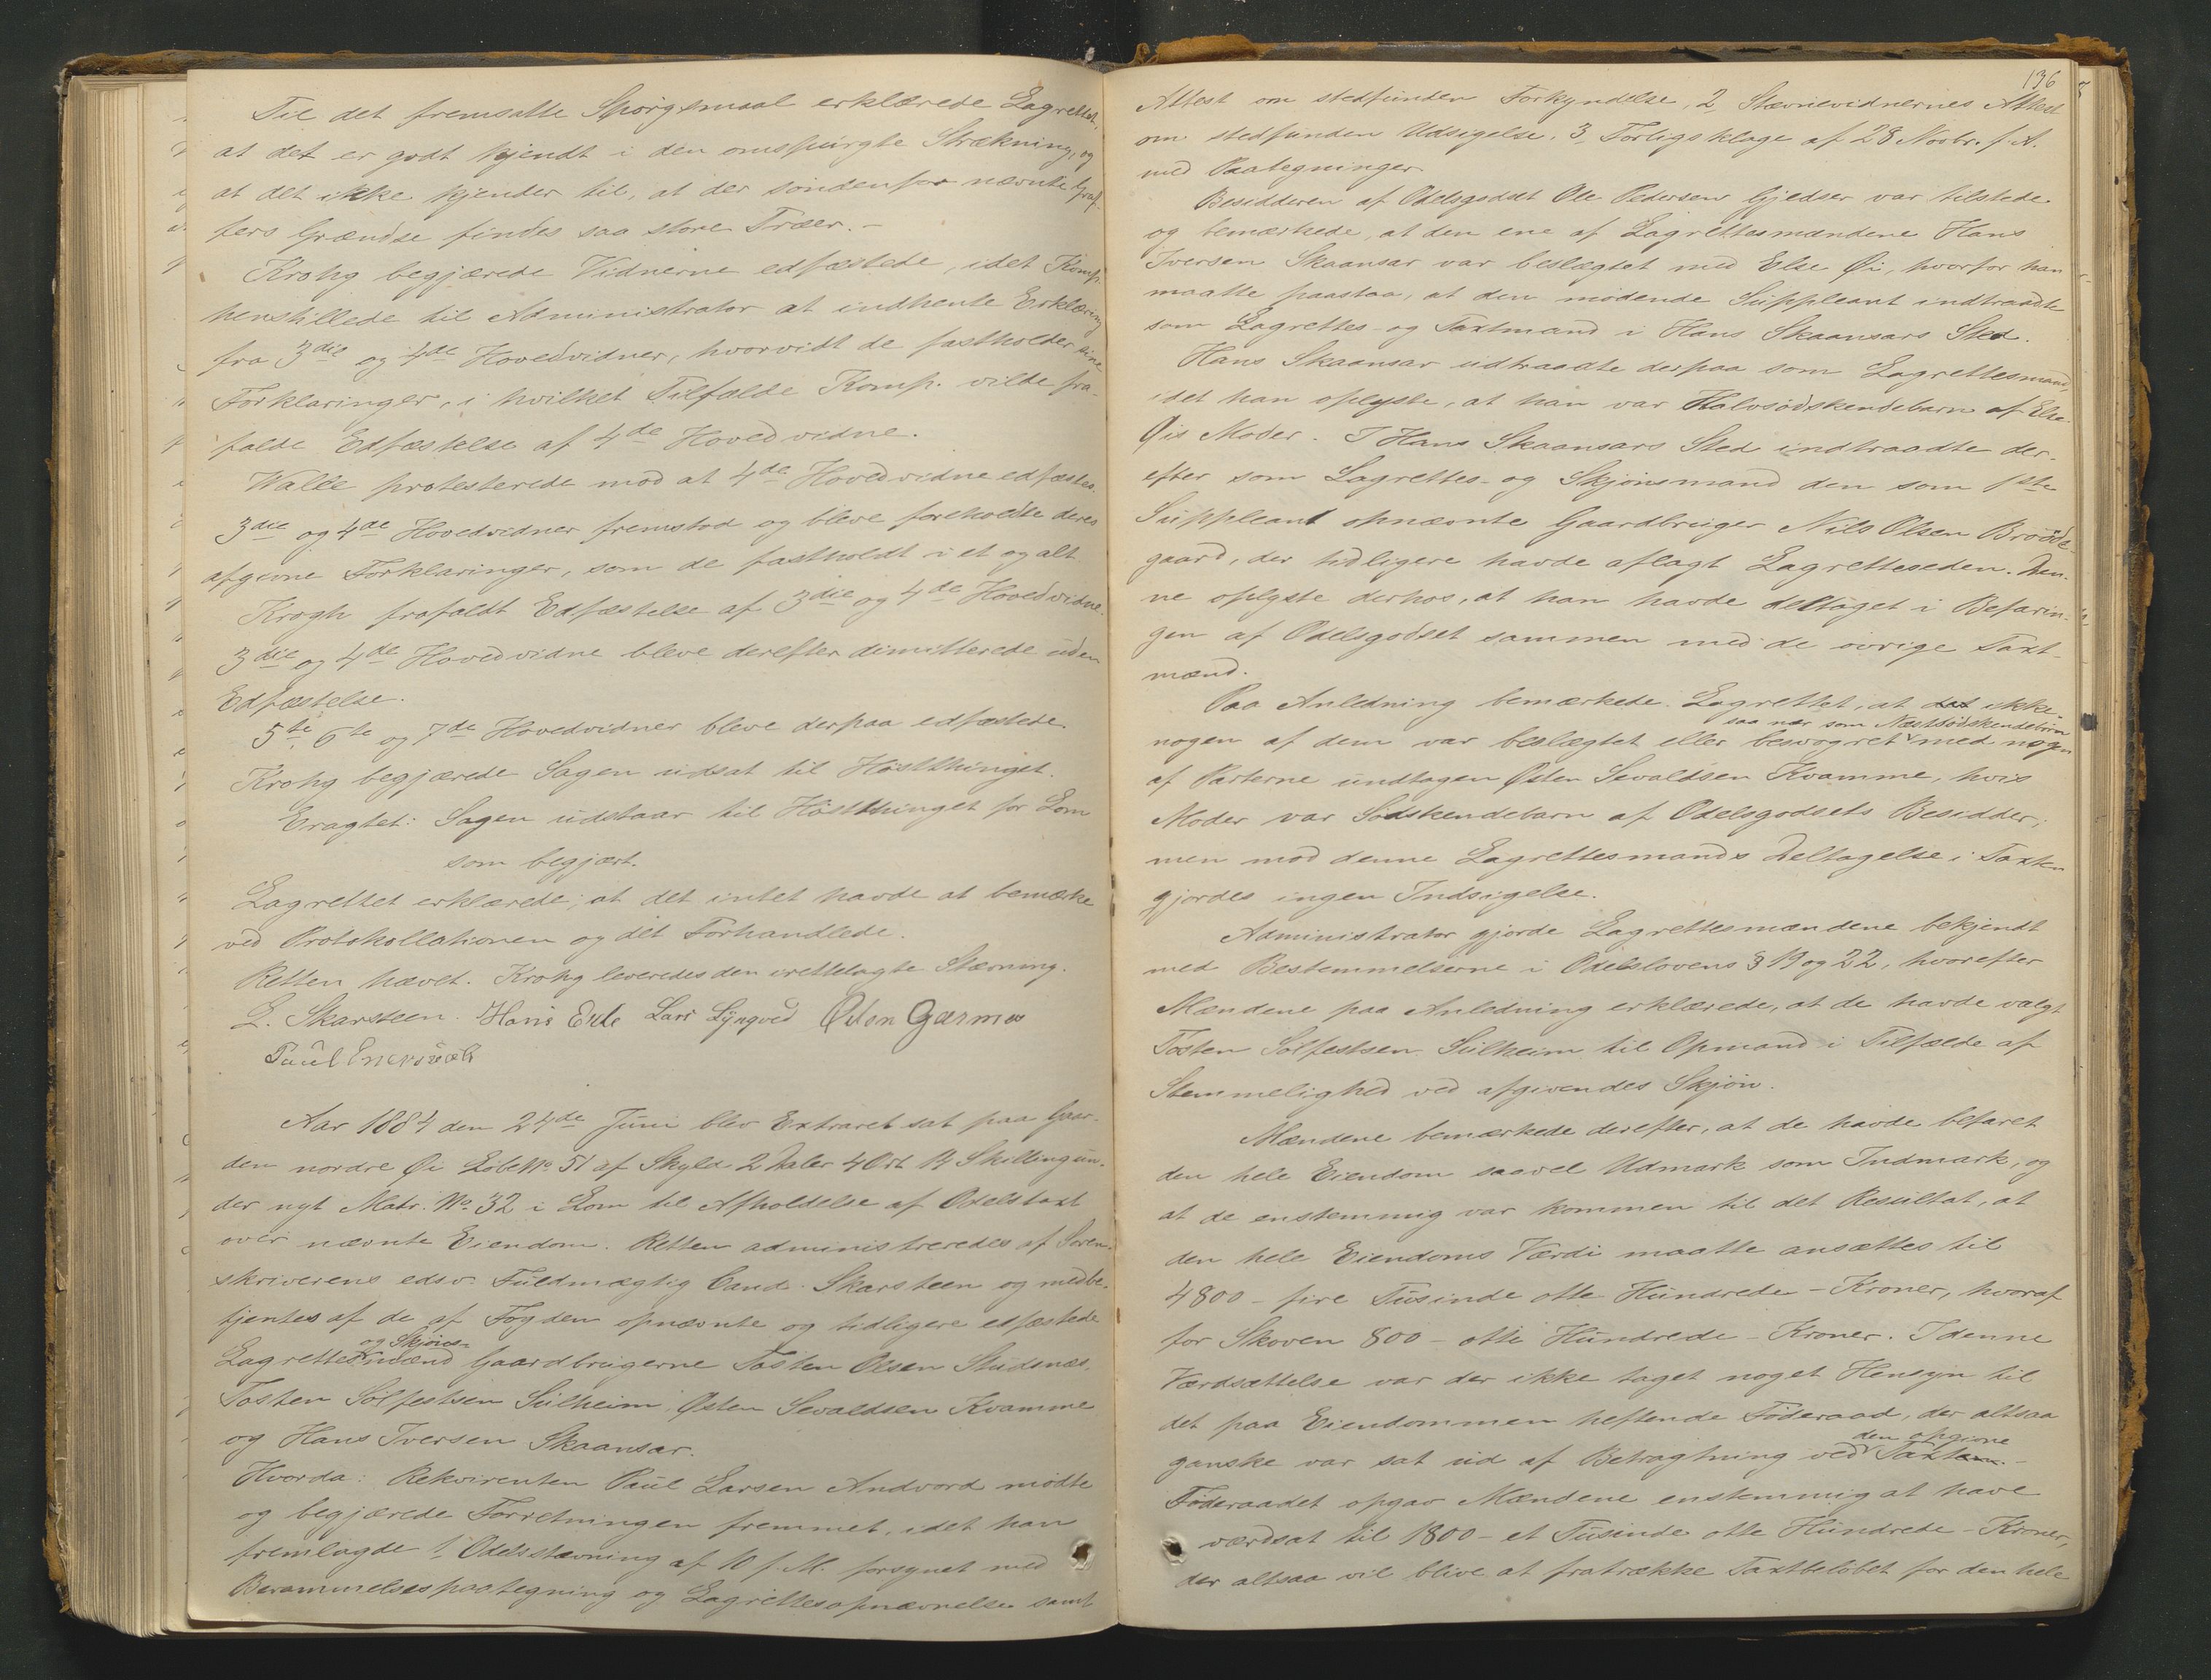 Til det fremsatte Spørgsmaal erklærede Lagrettet,
at det er godt kjendt i den omspurgte Strækning, og
at det ikke kjender til, at der søndenfor nævnte Graf-
fers Grændse findes saa store Træer. –
Krohg begjærede Vidnerne edfæstede, idet Komp.
henstillede til Administrator at indhente Erklæring
fra 3die og 4de Hovedvidner, hvorvidt de fastholder sine
Forklaringer, i hvilket Tilfælde Komp. vilde fra-
falde Edfæstelse af 4de Hovedvidne.
Walle protesterede mod at 4de Hovedvidne edfæstes.
3die og 4de Hovedvidner fremstod og bleve foreholdte deres
afgivne Forklaringer, som de fastholdt i et og alt.
Krogh frafaldt Edfæstelse af 3die og 4de Hovedvidne.
3die og 4de Hovedvidne bleve derefter dimitterede uden
Edfæstelse.
5te, 6te og 7de Hovedvidner bleve derpaa edfæstede.
Krohg begjærede Sagen udsat til Høstthinget.
Eragtet: Sagen udstaar til Høstthinget for Lom
som begjært.
Lagrettet erklærede, at det intet havde at bemærke
ved Protokollationen og det Forhandlede.
Retten hævet. Krohg leveredes den irettelagte Stævning.
L. Skarsteen. Hans Eide Lars Lyngved Østen Garmo
Paul
Aar 1884 den 24de Juni blev Extraret sat paa Gaar-
den nordre Øi LøbeNo 51 af Skyld 2 Daler 4 Ort 14 Skilling un-
der nyt Matr. No 32 i Lom til Afholdelse af Odelstaxt
over nævnte Eiendom. Retten administreredes af Soren-
skriverens edsv. Fuldmægtig Cand. Skarsteen og medbe-
tjentes af de af Fogden opnævnte og tidligere edfæstede
og Skjøns-
Lagrettesmænd Gaardbrugerne Tosten Olsen Studenæs,
Tosten Solfestsen Sulheim, Østen Sevaldsen Kvamme
og Hans Iversen Skaansar.
Hvorda: Rekvirenten Paul Larsen Andvord mødte
og begjærede Forretningen fremmet, idet han
fremlagde 1, Odelsstævning af 10 f. M. forsynet med
Berammelsespaategning og Lagrettesopnævnelse samt
136
Attest om stedfunden Forkyndelse, 2, Stævnevidnernes Attest
om stedfunden Udsigelse. 3, Forligsklage af 28 Novbr. f. A.
med Paategninger.
Besidderen af Odelsgodset Ole Pedersen Gjedser var tilstede
og bemærkede, at den ene af Lagrettesmændene Hans
Iversen Skaansar var beslægtet med Else Øi, hvorfor han
maatte paastaa, at den mødende Suppleant indtraadte
som Lagrettes- og Taxtmand i Hans Skaansars Sted.
Hans Skaansar udtraadte derpaa som Lagrettesmand,
idet han oplyste, at han var Halvsødskendebarn af Else
Øis Moder. I Hans Skaansars Sted indtraadte der-
efter som Lagrettes- og Skjønsmand den som 1ste
Suppleant opnævnte Gaardbruger Nils Olsen Brøde-
gaard, der tidligere havde aflagt Lagretteseden. Den-
ne oplyste derhos, at han havde deltaget i Befarin-
gen af Odelsgodset sammen med de øvrige Taxt-
mænd.
Paa Anledning bemærkede Lagrettet, at det ikke
saa nær som Næstsødskendebørn
nogen af dem var beslægtet eller besvogret med nogen
af Parterne undtagen Østen Sevaldsen Kvamme, hvis
Moder var Sødskendebarn af Odelsgodsets Besidder;
men mod denne Lagrettesmands Deltagelse i Taxten
gjordes ingen Indsigelse.
Administrator gjorde Lagrettesmændene bekjendt
med Bestemmelserne i Odelslovens § 19 og 22, hvorefter
Mændene paa Anledning erklærede, at de havde valgt
Tosten Solfestsen Sulheim til Opmand i Tilfælde af
Stemmelighed ved afgivendes Skjøn.
Mændene bemærkede derefter, at de havde befaret
den hele Eiendom saavel Udmark som Indmark, og
at de enstemmig var kommen til det Resultat, at
den hele Eiendoms Værdi maatte ansættes til
4800 – fire Tusinde otte Hundrede – Kroner, hvoraf
for Skoven 800 – otte Hundrede – Kroner. I denne
Værdsættelse var der ikke taget noget Hensyn til
det paa Eiendommen heftende Føderaad, der altsaa
den opgivne
ganske var sat ud af Betragtning ved Taxten. –
Føderaadet opgav Mændene enstemmig at have
værdsat til 1800 – et Tusinde otte Hundrede – Kroner,
der altsaa vil blive at fratrække Taxtbeløbet for den hele